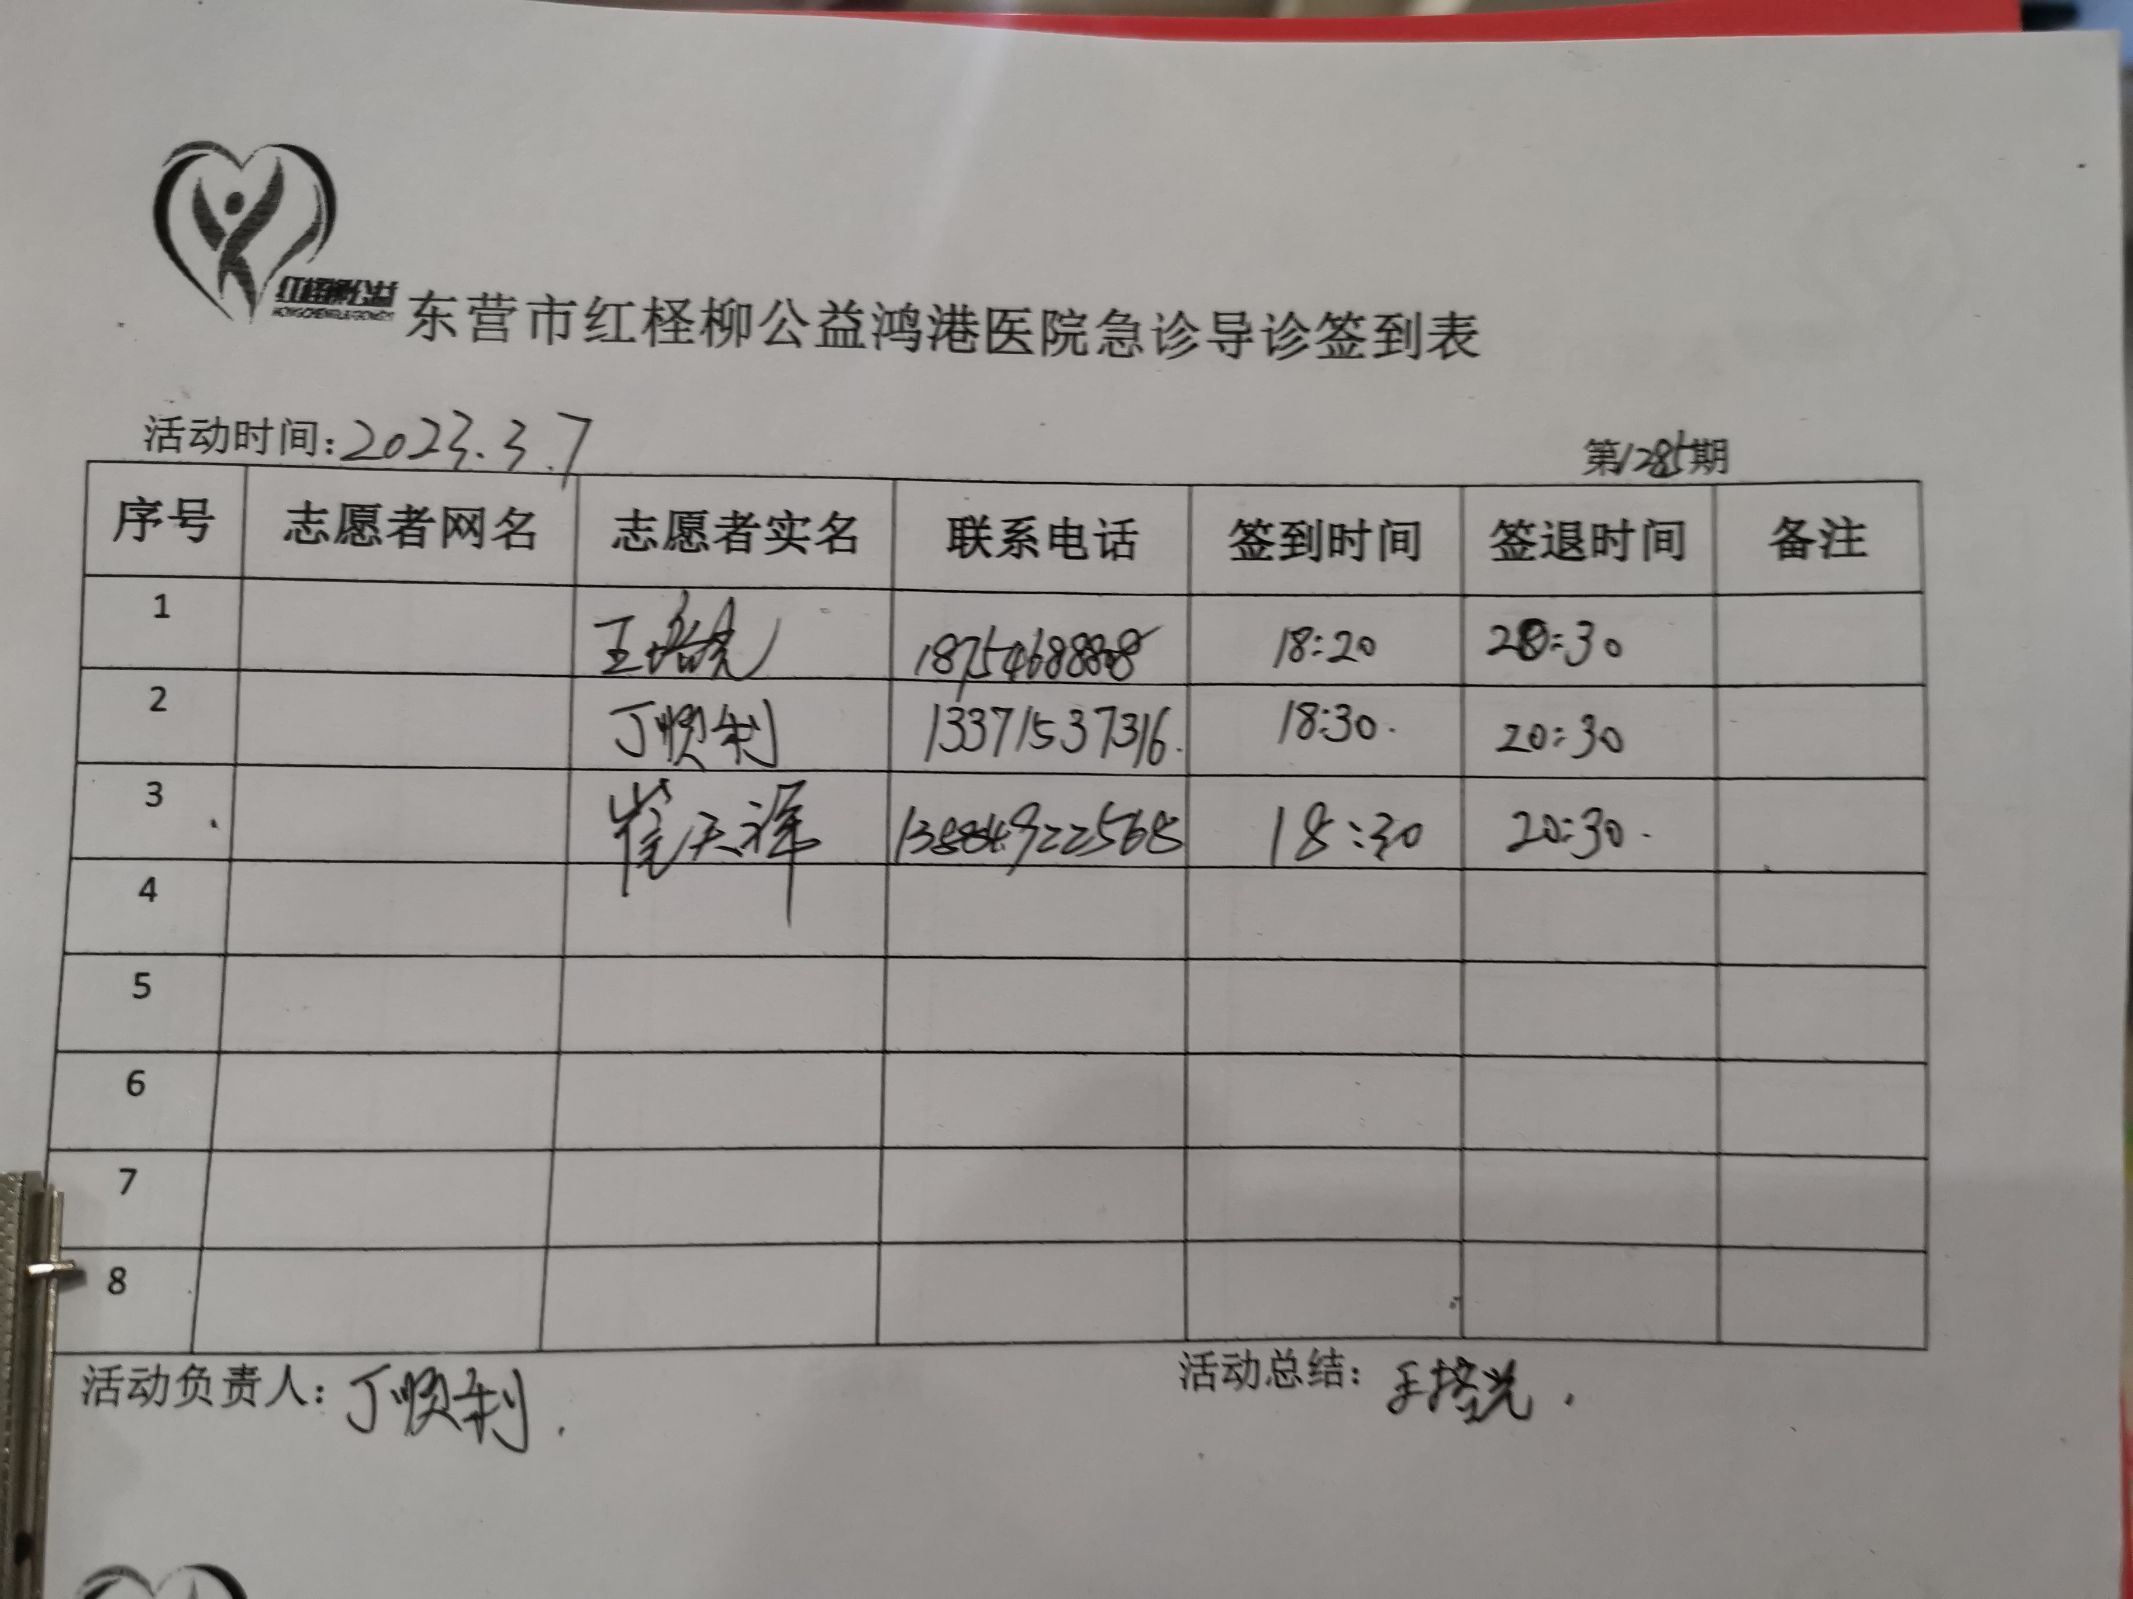 红柽柳公益
东营市红柽柳公益鸿港医院急诊导诊签到表
活动时间:2023.3.7 第1285期
序号 志愿者网名 志愿者实名 联系电话 签到时间 签退时间 备注
1 王培亮 18754688808 18:20 20:30
2 丁顺利 13371537316. 18:30. 20:30
3 崔天祥 13884922568 18:30 20:30.
4
5
6
7
8
活动负责人:丁顺利. 活动总结:王培光.